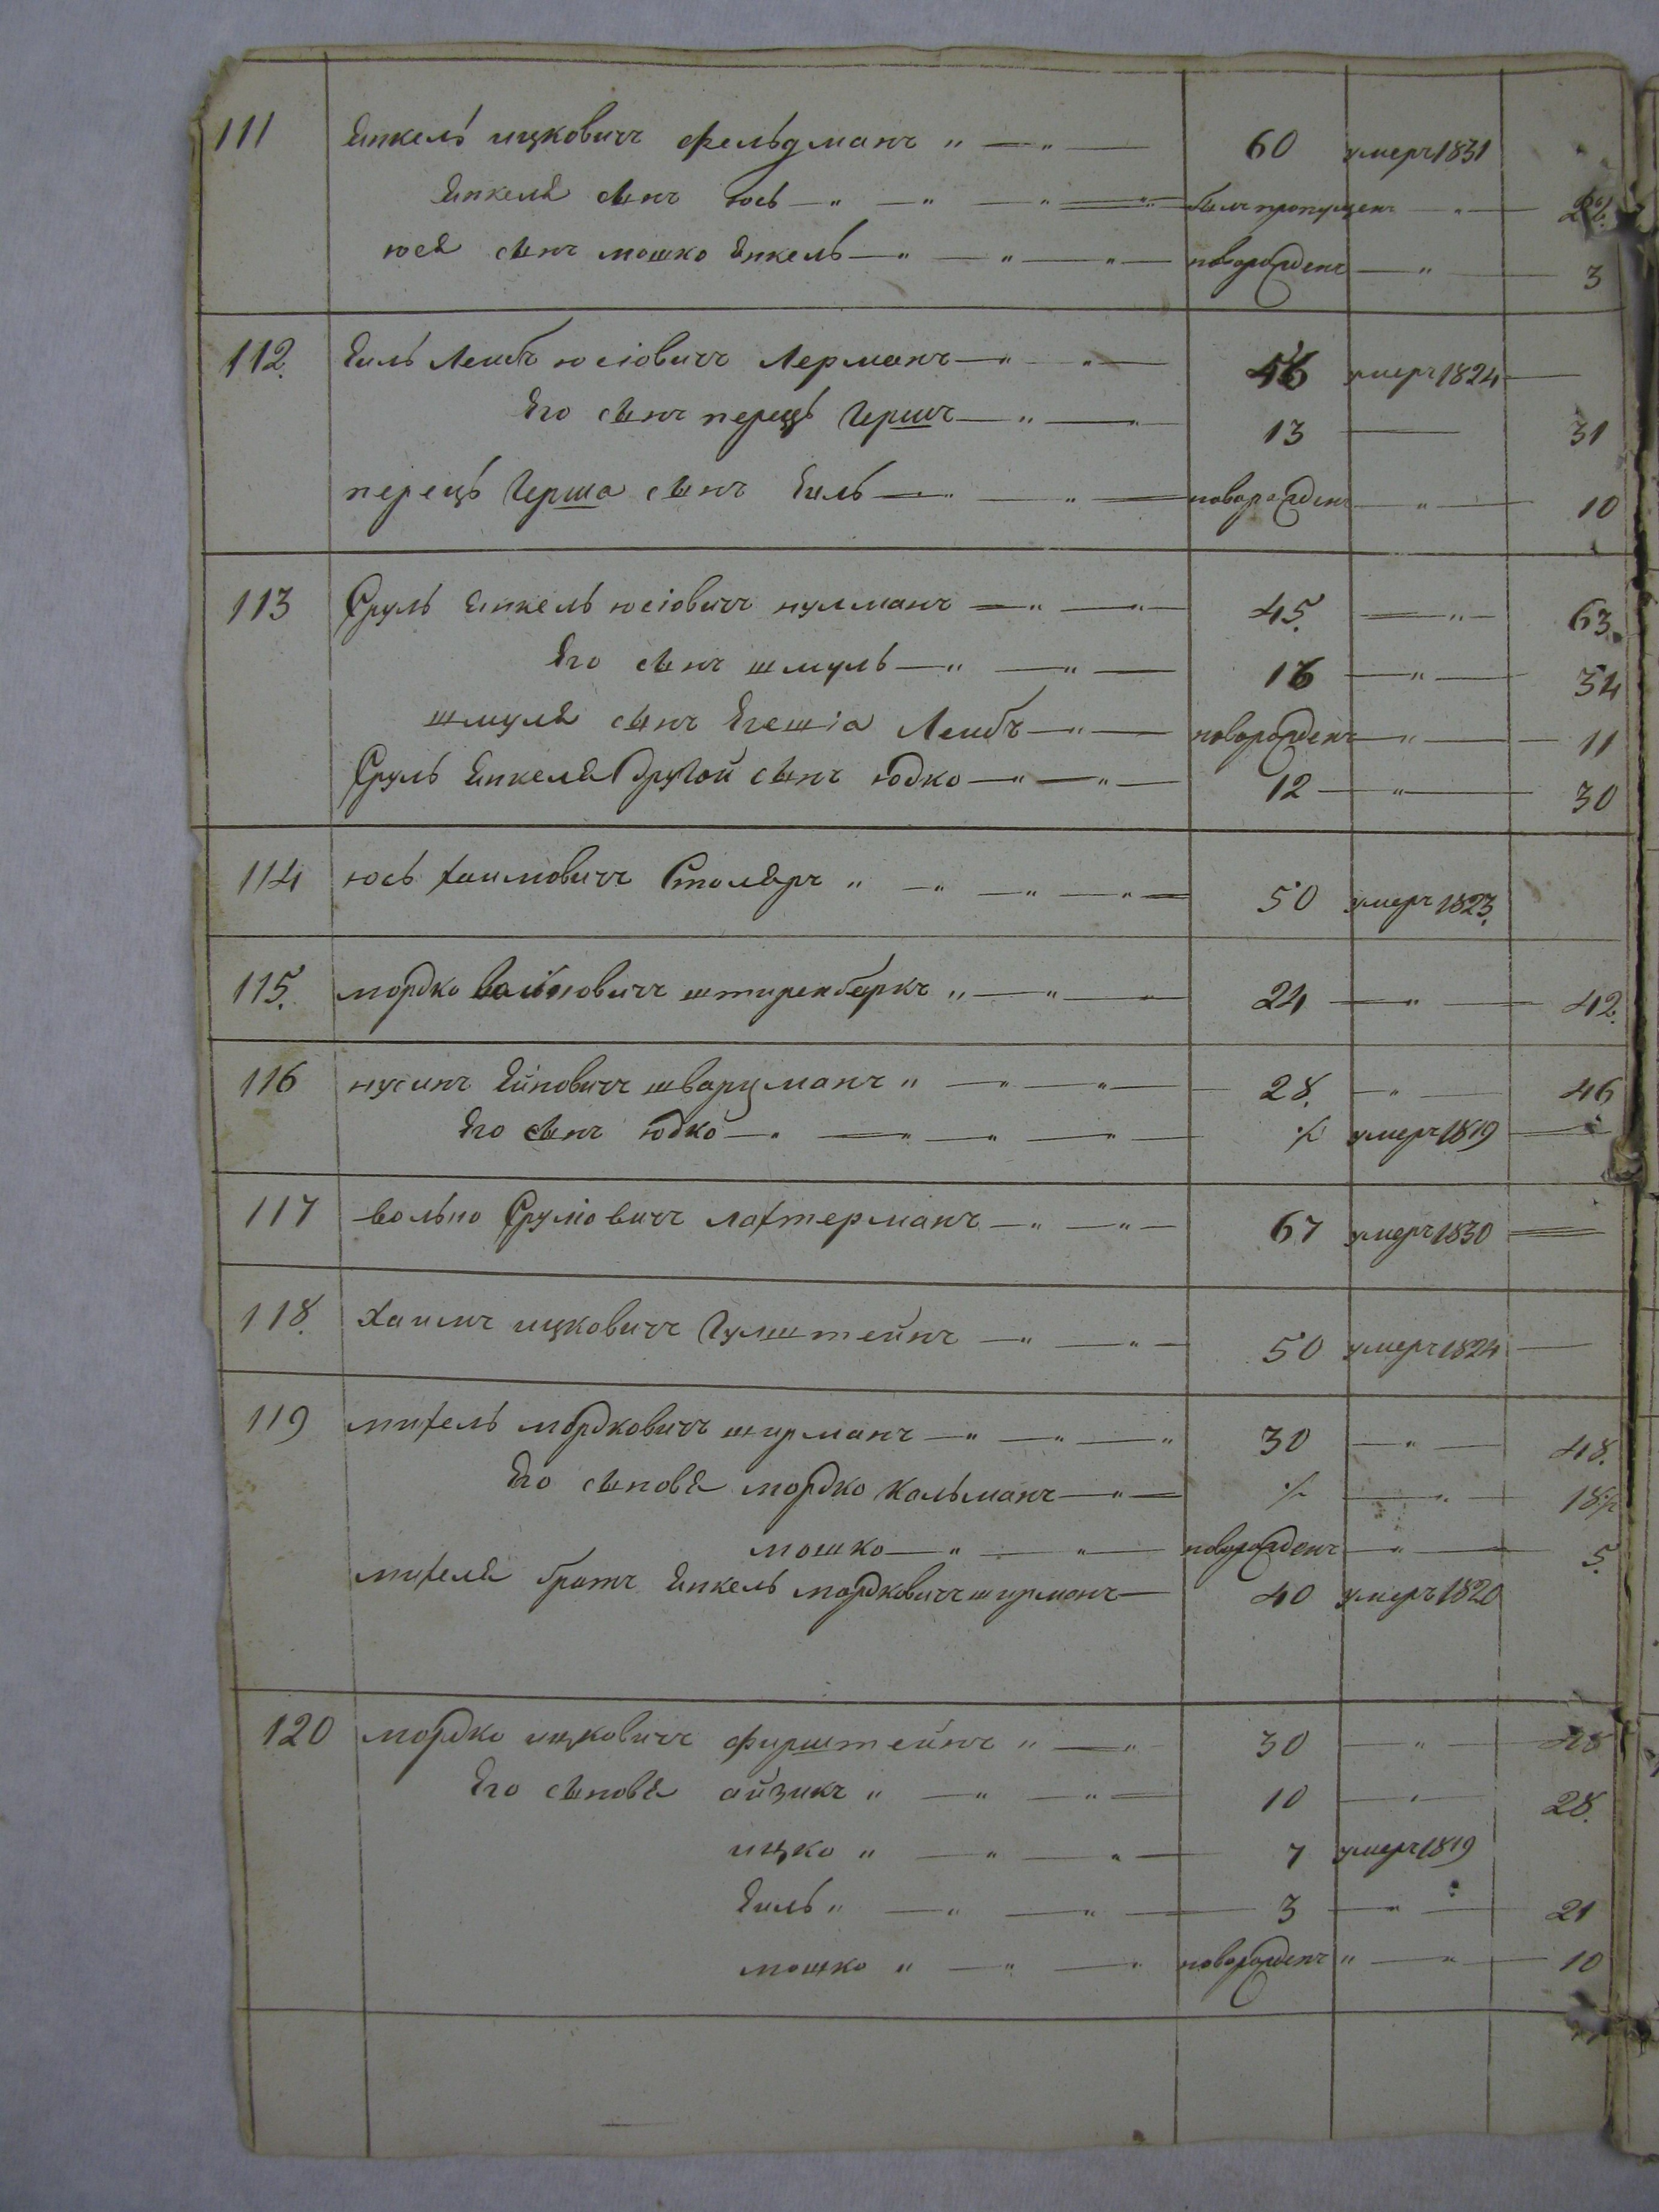 111 Янкель ицковичъ фельдманъ " — " — 60 умеръ 1831
Янкеля сынъ юсь — " — " — " — былъ пропущенъ — " —
юся сынъ мошко Янкель — " — " — " — новорожденъ — " — 3
112. Ельъ Лейбъ юсіовичъ Лерманъ — " — " — 46 умеръ 1824 —
Его сынъ перецъ Гершъ — " — " — 13 — 31
перецъ Герша сынъ Ель — " — " — новорожденъ — " — 10
113 Сруль Янкель юсіовичъ нулманъ — " — " — 45. — " — 63.
Его сынъ шмуль — " — " — 16 — " — 34
шмуля сынъ Егешіа Лейбъ — " — новорожденъ — " — 11
Сруль Янкеля другой сынъ юдко — " — " — 12 — " — 30
114 юсь хаимовичъ Столяръ " — " — " — " — 50 умеръ 1823.
115. мордко штиренберкъ " — " — " 24 — " — 42.
116 нусинъ Ейновичъ шварцманъ " — " — " — 28. — " — 46
Его сынъ юдко — " — " — " — " — ½ умеръ 1819 —
117 волько Сруліовичъ лахтерманъ — " — " — 67 умеръ 1830 —
118. Хаимъ ицковичъ Гулштейнъ — " — " — 50 умеръ 1824 —
119 михель мордковичъ ширманъ — " — " — " 30 — " — 48.
Его сыновя мордко кальманъ — " — ½ — " — 18½
мошко — " — " — новорожденъ — " — 5.
михеля братъ Янкель мордковичъ ширманъ — 40 умеръ 1820
120 мордко ицковичъ фирштейнъ " — " 30 — " — 48
Его сыновя айзикъ " — " — " — 10 — " — 28.
ицко " — " — " — 7 умеръ 1819
Ель " — " — " — 3 — " — 21
мошко " — " — " новорожденъ " — " — 10